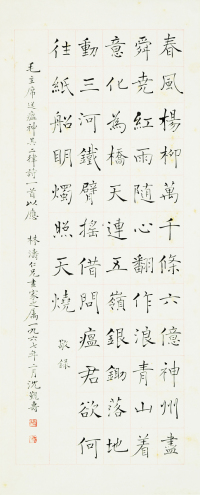 春風楊柳萬千條六億神州盡
舜堯紅雨隨心翻作浪青山着
意化為橋天連五嶺銀鋤落地
動三河鐵臂搖借問瘟君欲何
往紙船明燭照天燒
敬錄
毛主席送瘟神其二律詩一首以應
林濤仁兄畫家之屬一九六七年六月沈觀壽